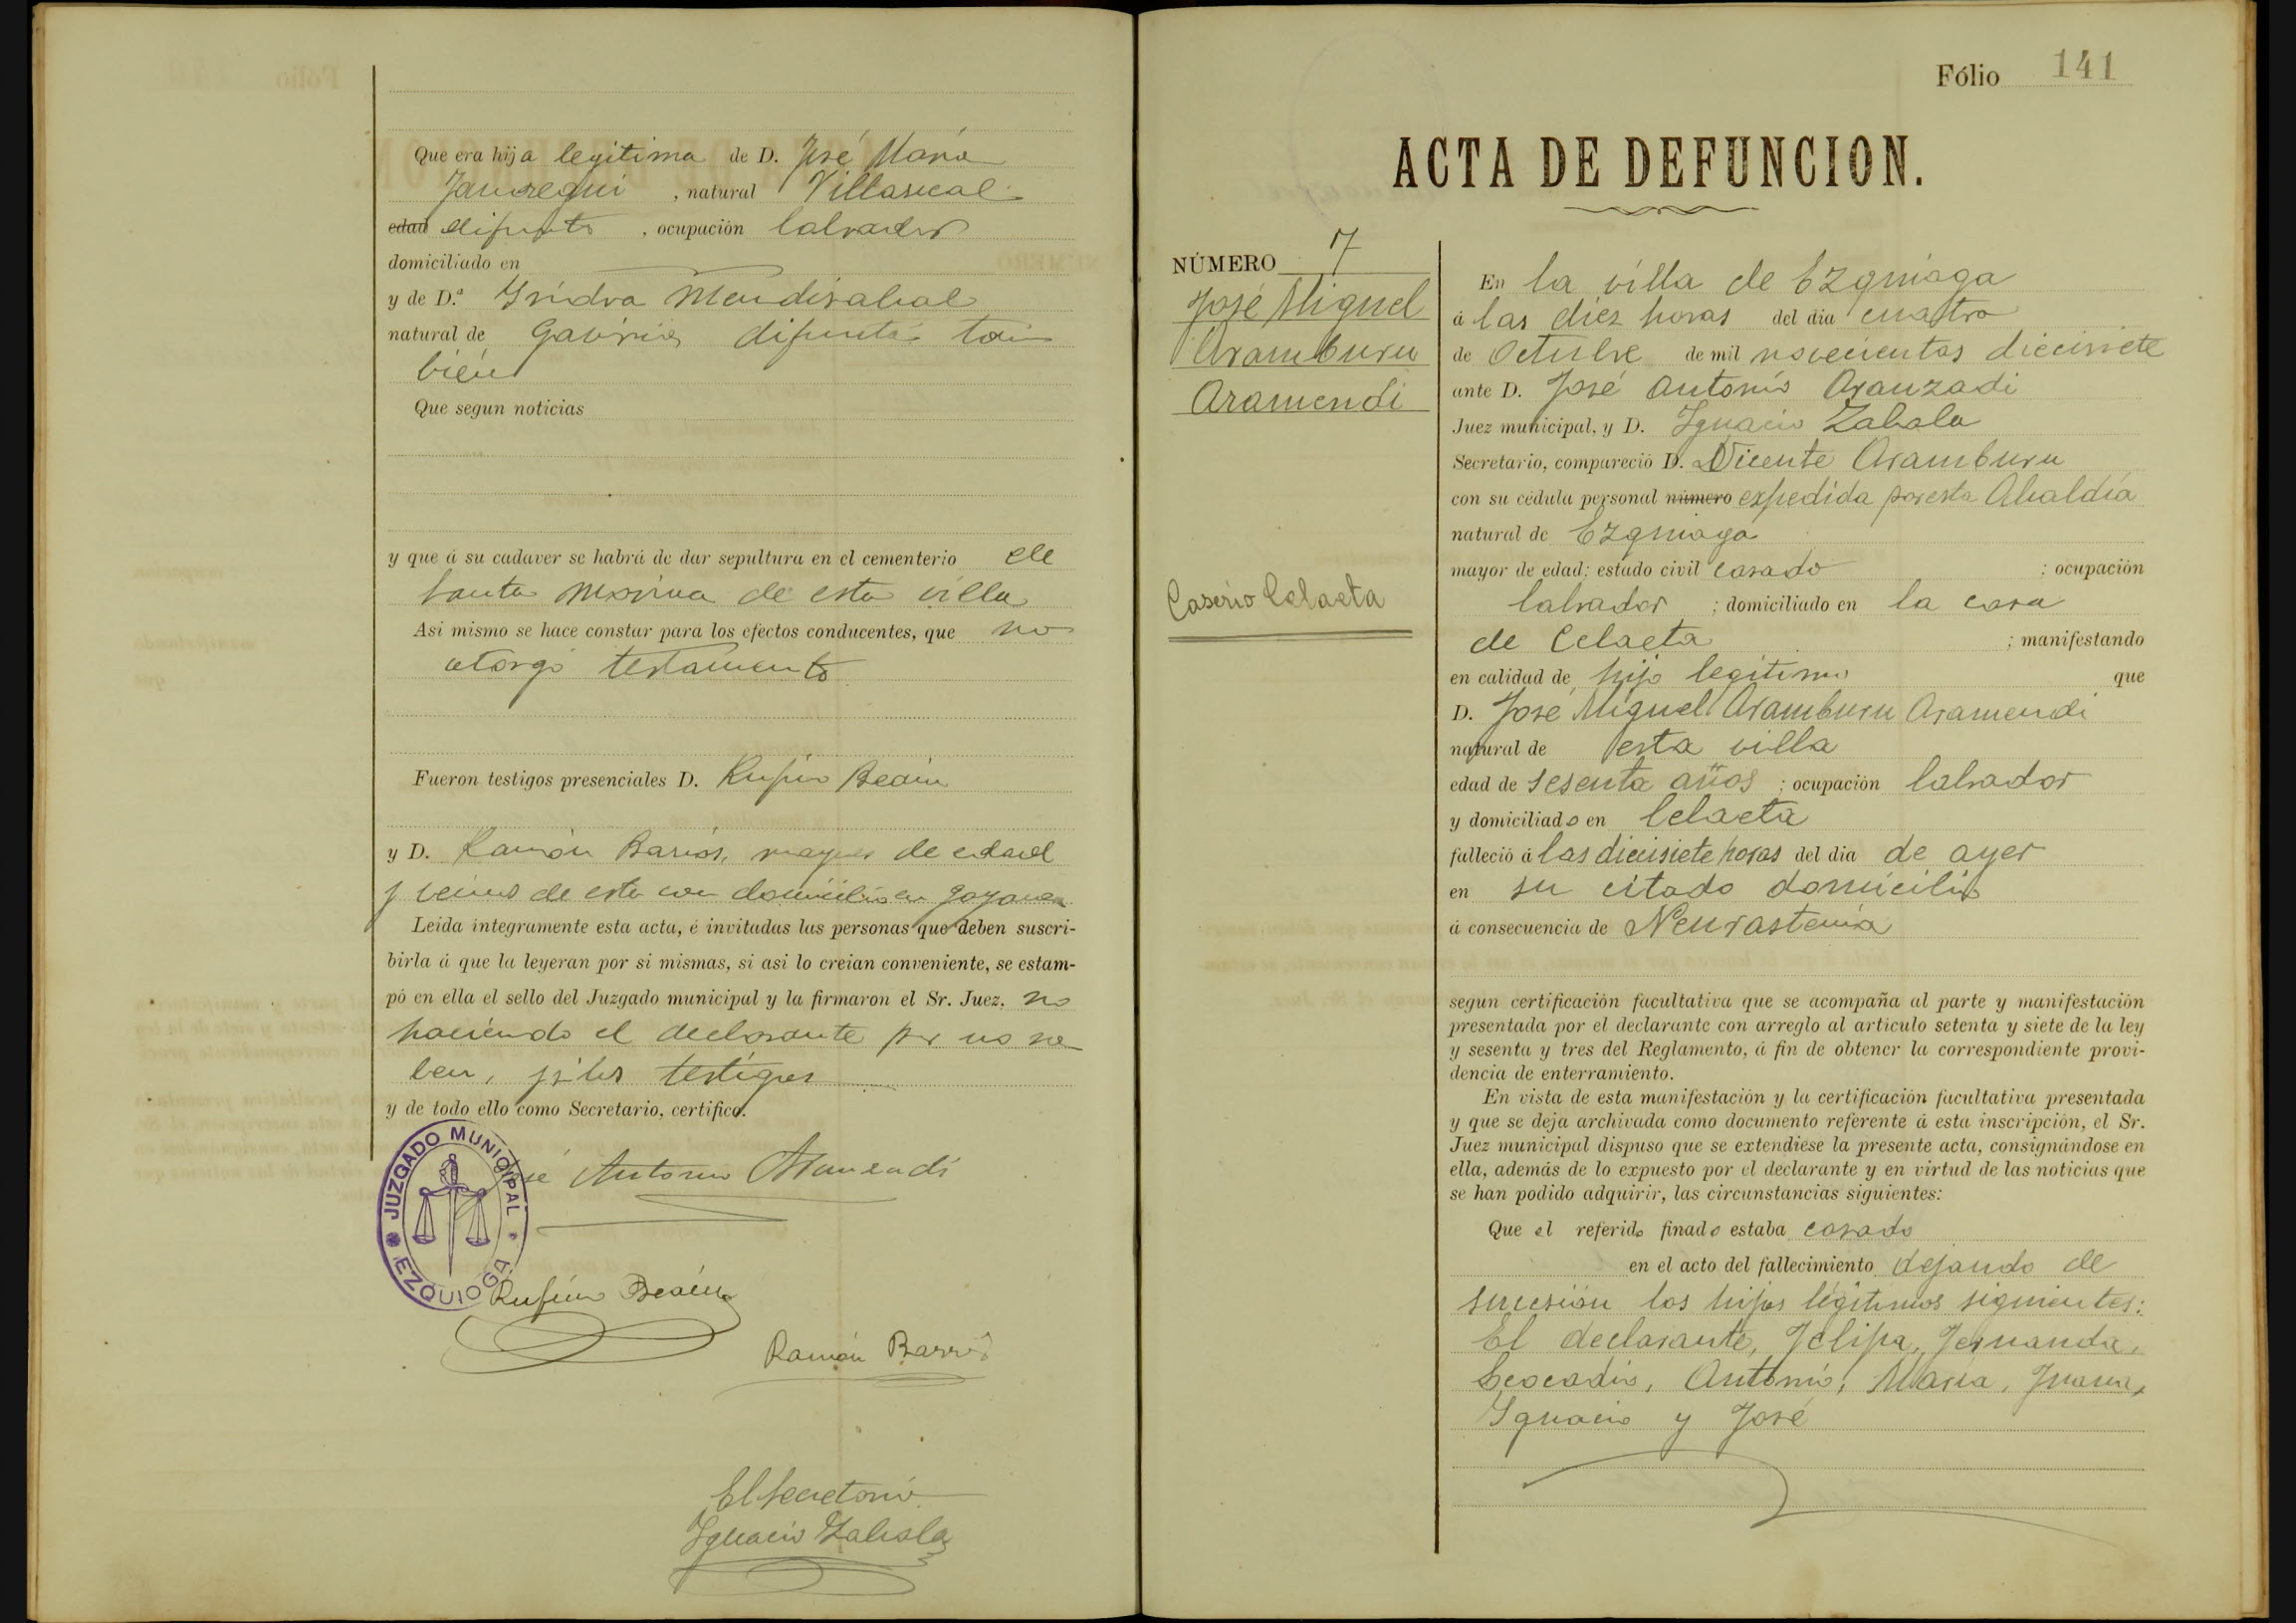 Que era hija legitima de D. José María
Jauregui, natural Villareal
edad difunto, ocupación labrador
domiciliado en
y de D.ª Ysidra Mendizabal
natural de Gaviria, difunta tam
bién
Que segun noticias
y que á su cadaver se habrá de dar sepultura en el cementerio de
Santa Marina de esta villa
Asi mismo se hace constar para los efectos conducentes, que no
otorgó testamento
Fueron testigos presenciales D. Rufino Beain
y D. Ramón Barrios, mayores de edad
y vecinos de esta con domicilio en
Leida integramente esta acta, é invitadas las personas que deben suscri-
birla á que la leyeran por si mismas, si asi lo creian conveniente, se estam-
pó en ella el sello del Juzgado municipal y la firmaron el Sr. Juez. no
haciendo el declarante por no sa
ber, y los testigos
y de todo ello como Secretario, certifico.
JUZGADO MUNICIPAL
EZQUIOGA
José Antonio Aranzadi
Rufino Beain
Ramón Barrio
El Secretario
Ygnacio Zabala
Fólio 141
ACTA DE DEFUNCION.
NÚMERO 7
José Miguel
Aramburu
Aramendi
Caserio Celaeta
En la villa de Ezquioga
á las diez horas del dia cuatro
de Octubre de mil novecientos diecisiete
ante D. José Antonio Aranzadi
Juez municipal, y D. Ygnacio Zabala
Secretario, compareció D. Vicente Aramburu
con su cédula personal número expedida por esta Alcaldía
natural de Ezquioga
mayor de edad; estado civil casado ; ocupación
labrador ; domiciliado en la casa
de Celaeta ; manifestando
en calidad de hijo legitimo que
D. José Miguel Aramburu Aramendi
natural de esta villa
edad de sesenta años ; ocupación labrador
y domiciliado en Celaeta
falleció á las diecisiete horas del dia de ayer
en su citado domicilio
á consecuencia de Neurastenia
segun certificación facultativa que se acompaña al parte y manifestación
presentada por el declarante con arreglo al articulo setenta y siete de la ley
y sesenta y tres del Reglamento, á fin de obtener la correspondiente provi-
dencia de enterramiento.
En vista de esta manifestación y la certificación facultativa presentada
y que se deja archivada como documento referente á esta inscripción, el Sr.
Juez municipal dispuso que se extendiese la presente acta, consignándose en
ella, además de lo expuesto por el declarante y en virtud de las noticias que
se han podido adquirir, las circunstancias siguientes:
Que el referido finado estaba casado
en el acto del fallecimiento dejando de
sucesión los hijos légitimos siguientes:
El declarante, Felipa, Fernanda,
Leocadio, Antonio, María, Juana,
Ygnacio y José